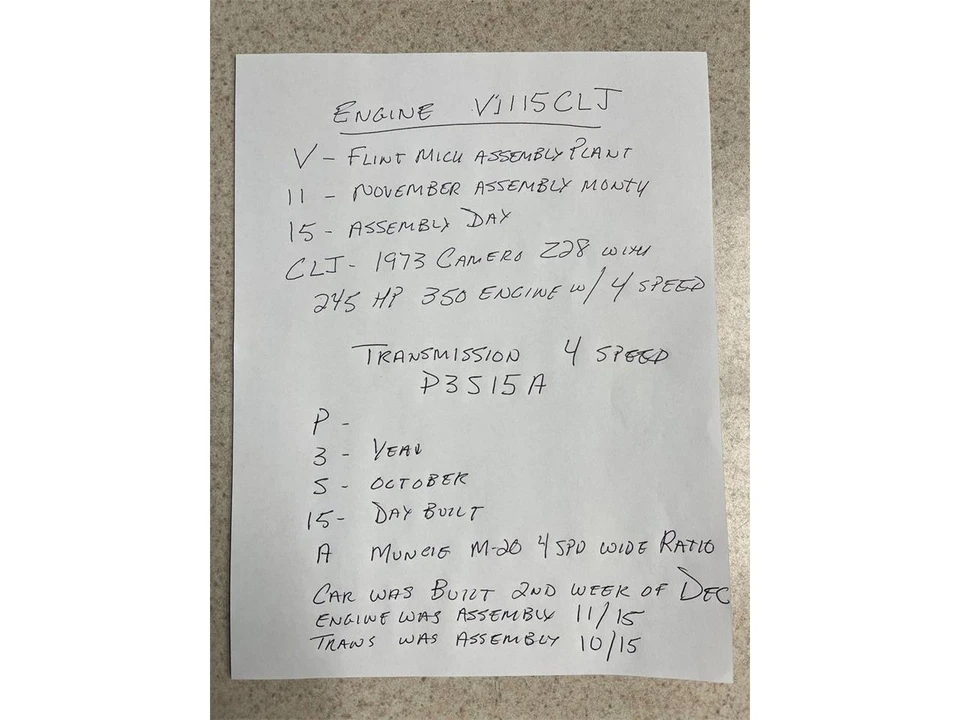 ENGINE V1115CLJ
V - FLINT MICH ASSEMBLY PLANT
11 - NOVEMBER ASSEMBLY MONTH
15 - ASSEMBLY DAY
CLJ - 1973 CAMERO Z28 WITH
245 HP 350 ENGINE W/ 4 SPEED
TRANSMISSION 4 SPEED
P3S15A
P -
3 - YEAR
S - OCTOBER
15 - DAY BUILT
A MUNCIE M-20 4 SPD WIDE RATIO
CAR WAS BUILT 2ND WEEK OF DEC
ENGINE WAS ASSEMBLY 11/15
TRANS WAS ASSEMBLY 10/15